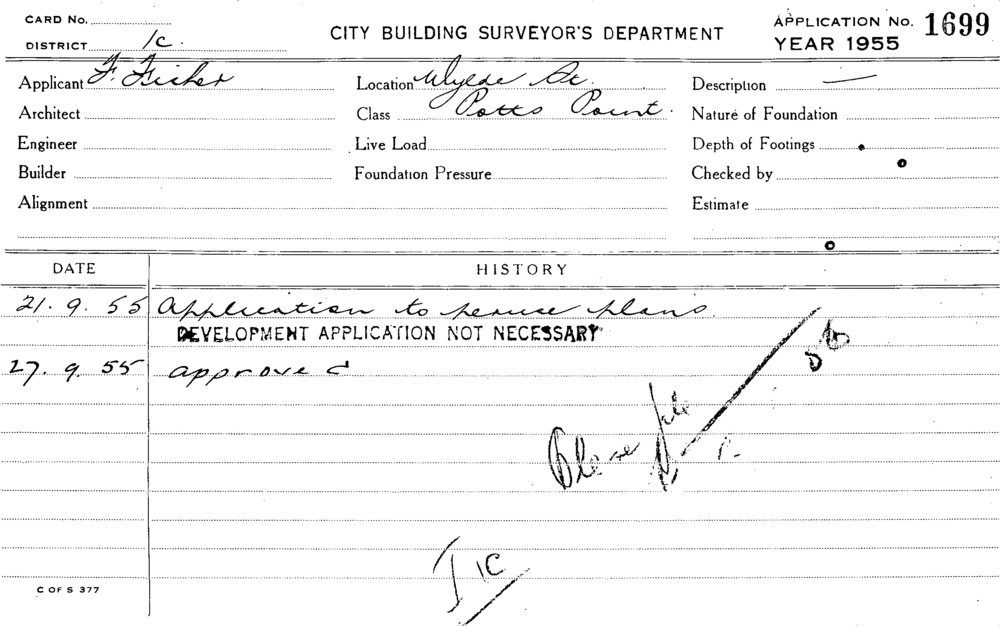 CARD No.
DISTRICT 1c.
CITY BUILDING SURVEYOR'S DEPARTMENT
APPLICATION No. 1699
YEAR 1955
Applicant F. Fisher
Location Wylde St.
Description —
Architect
Class Potts Point.
Nature of Foundation
Engineer
Live Load
Depth of Footings
Builder
Foundation Pressure
Checked by
Alignment
Estimate
DATE
HISTORY
21. 9. 55 Application to peruse plans.
DEVELOPMENT APPLICATION NOT NECESSARY
27. 9. 55 approved
Please file
1C
C OF S 377